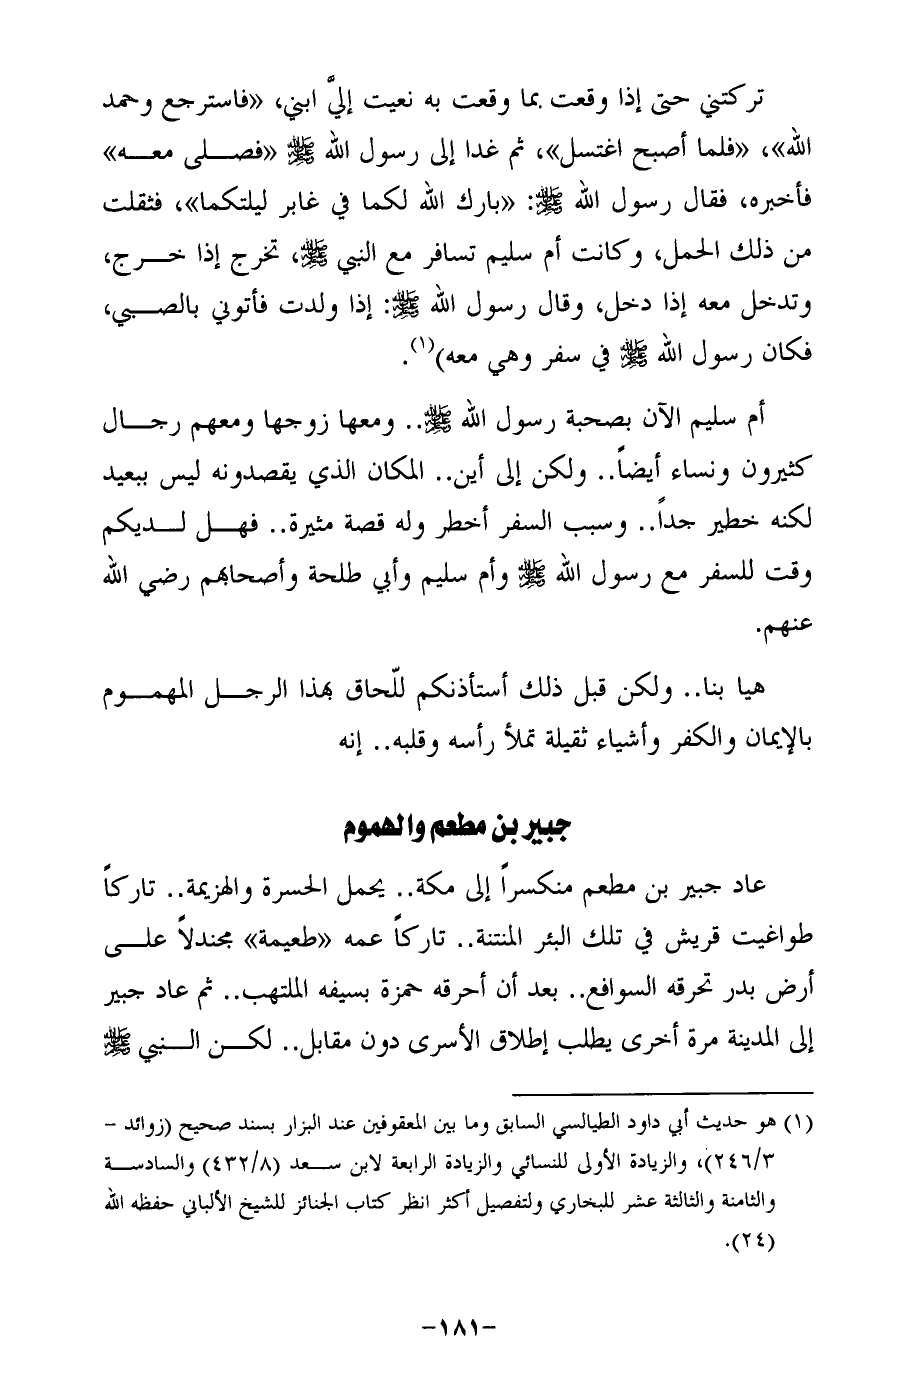 تركتني حتى إذا وقعت بما وقعت به نعيت إليَّ ابني، «فاسترجع وحمد
الله»، «فلما أصبح اغتسل»، ثم غدا إلى رسول الله ﷺ «فصلى معه»
فأخبره، فقال رسول الله ﷺ: «بارك الله لكما في غابر ليلتكما»، فثقلت
من ذلك الحمل، وكانت أم سليم تسافر مع النبي ﷺ، تخرج إذا خرج،
وتدخل معه إذا دخل، وقال رسول الله ﷺ: إذا ولدت فأتوني بالصبي،
فكان رسول الله ﷺ في سفر وهي معه)(١).
أم سليم الآن بصحبة رسول الله ﷺ.. ومعها زوجها ومعهم رجال
كثيرون ونساء أيضاً.. ولكن إلى أين.. المكان الذي يقصدونه ليس ببعيد
لكنه خطير جداً.. وسبب السفر أخطر وله قصة مثيرة.. فهل لديكم
وقت للسفر مع رسول الله ﷺ وأم سليم وأبي طلحة وأصحابهم رضي الله
عنهم.
هيا بنا.. ولكن قبل ذلك أستأذنكم للّحاق بهذا الرجل المهموم
بالإيمان والكفر وأشياء ثقيلة تملأ رأسه وقلبه.. إنه
جبير بن مطعم والهموم
عاد جبير بن مطعم منكسراً إلى مكة.. يحمل الحسرة والهزيمة.. تاركاً
طواغيت قريش في تلك البئر المنتنة.. تاركاً عمه «طعيمة» مجندلاً على
أرض بدر تحرقه السوافع.. بعد أن أحرقه حمزة بسيفه الملتهب.. ثم عاد جبير
إلى المدينة مرة أخرى يطلب إطلاق الأسرى دون مقابل.. لكن النبي ﷺ
(١) هو حديث أبي داود الطيالسي السابق وما بين المعقوفين عند البزار بسند صحيح (زوائد –
٢٤٦/٣)، والزيادة الأولى للنسائي والزيادة الرابعة لابن سعد (٤٣٢/٨) والسادسة
والثامنة والثالثة عشر للبخاري ولتفصيل أكثر انظر كتاب الجنائز للشيخ الألباني حفظه الله
(٢٤).
-١٨١-